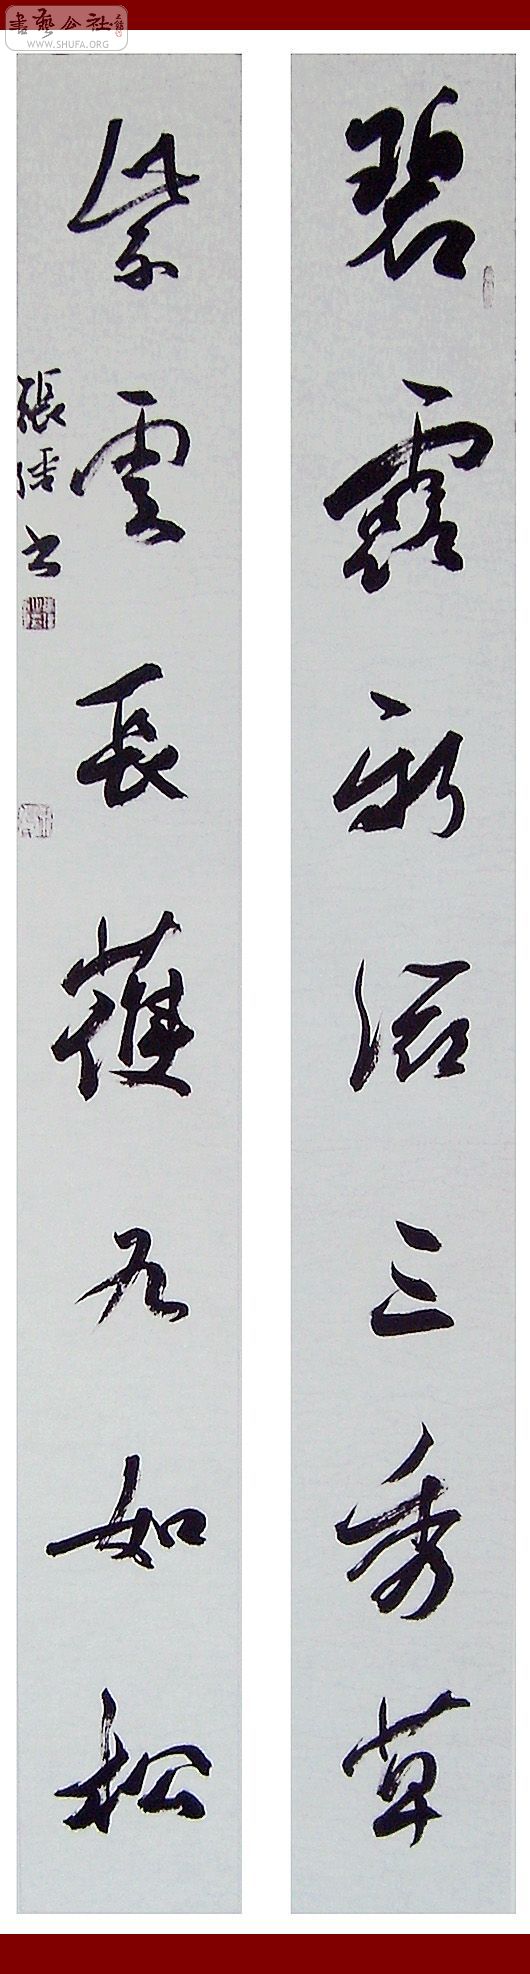 碧露新滋三秀草
紫雲長護九如松
書藝公社
WWW.SHUFA.ORG